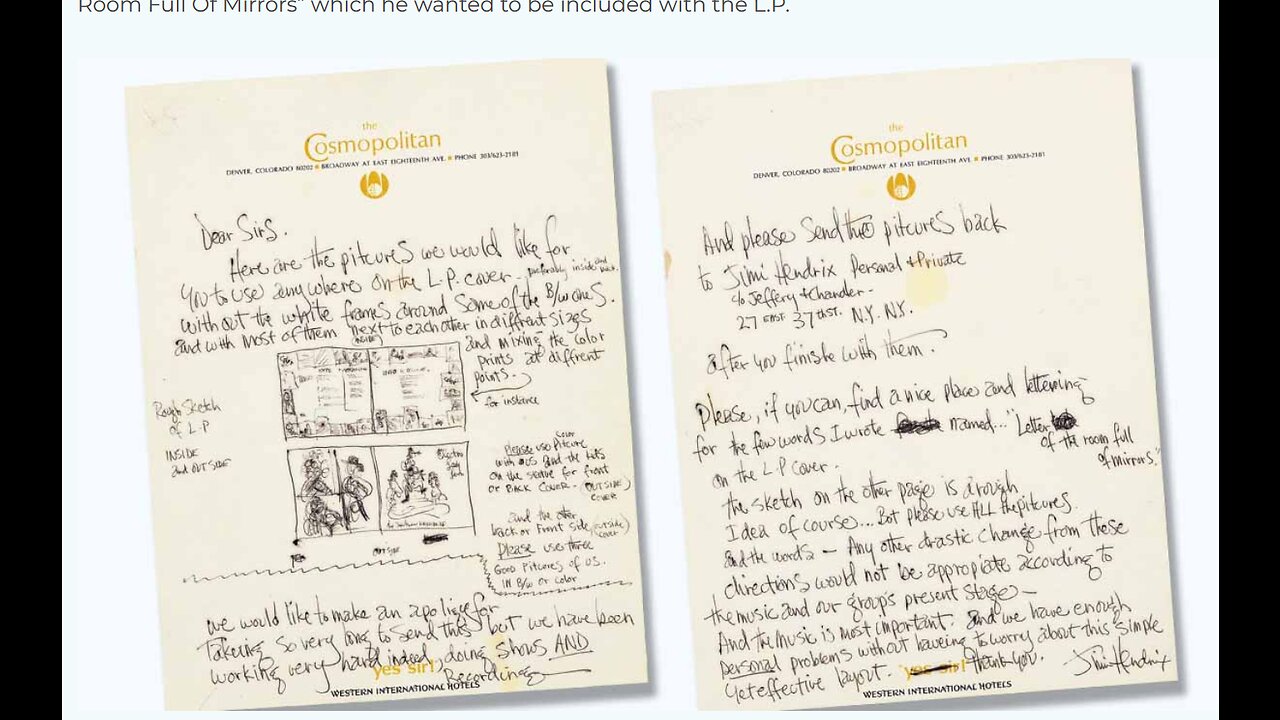 Room Full Of Mirrors" which he wanted to be included with the L.P.
the
Cosmopolitan
DENVER, COLORADO 80202 ■ BROADWAY AT EAST EIGHTEENTH AVE. ■ PHONE 303/623-2181
Dear Sirs.
Here are the pitcures we would like for
you to use anywhere on the L.P. cover - preferably inside and back.
without the white frames around some of the B/W ones.
and with most of them next to each other in different sizes
(INSIDE)
and mixing the color
prints at different
points.
for instance
Rough Sketch
of L-P
INSIDE
and OUTSIDE
cover
Please use Pitcure
with us and the kids
on the statue for front
or BACK COVER - (OUTSIDE)
COVER
and the other
back or Front side (outside)
cover
Please use three
Good Pitcures of us.
IN B/W or color
OUTSIDE
we would like to make an apoligee for
Takeing so very long to send this but we have been
working very hard indeed, doing shows AND
Recording
yes sir!
WESTERN INTERNATIONAL HOTELS
the
Cosmopolitan
DENVER, COLORADO 80202 ■ BROADWAY AT EAST EIGHTEENTH AVE. ■ PHONE 303/623-2181
And please send the pitcures back
to Jimi Hendrix Personal + Private
c/o Jeffery + Chandler -
27 EAST 37th ST. N.Y. N.Y.
after you finishe with them.
Please, if you can, find a nice place and lettering
for the few words I wrote named... "Letter
of the room full
of mirrors."
on the L P cover.
the sketch on the other page is a rough
Idea of course.. But please use ALL the pitcures
and the words - Any other drastic change from these
directions would not be appropiate according to
the music and our group's present stage -
And the music is most important. and we have enough
personal problems without haveing to worry about this simple
yet effective layout.
yes sir!
thank you.
Jimi Hendrix
WESTERN INTERNATIONAL HOTELS